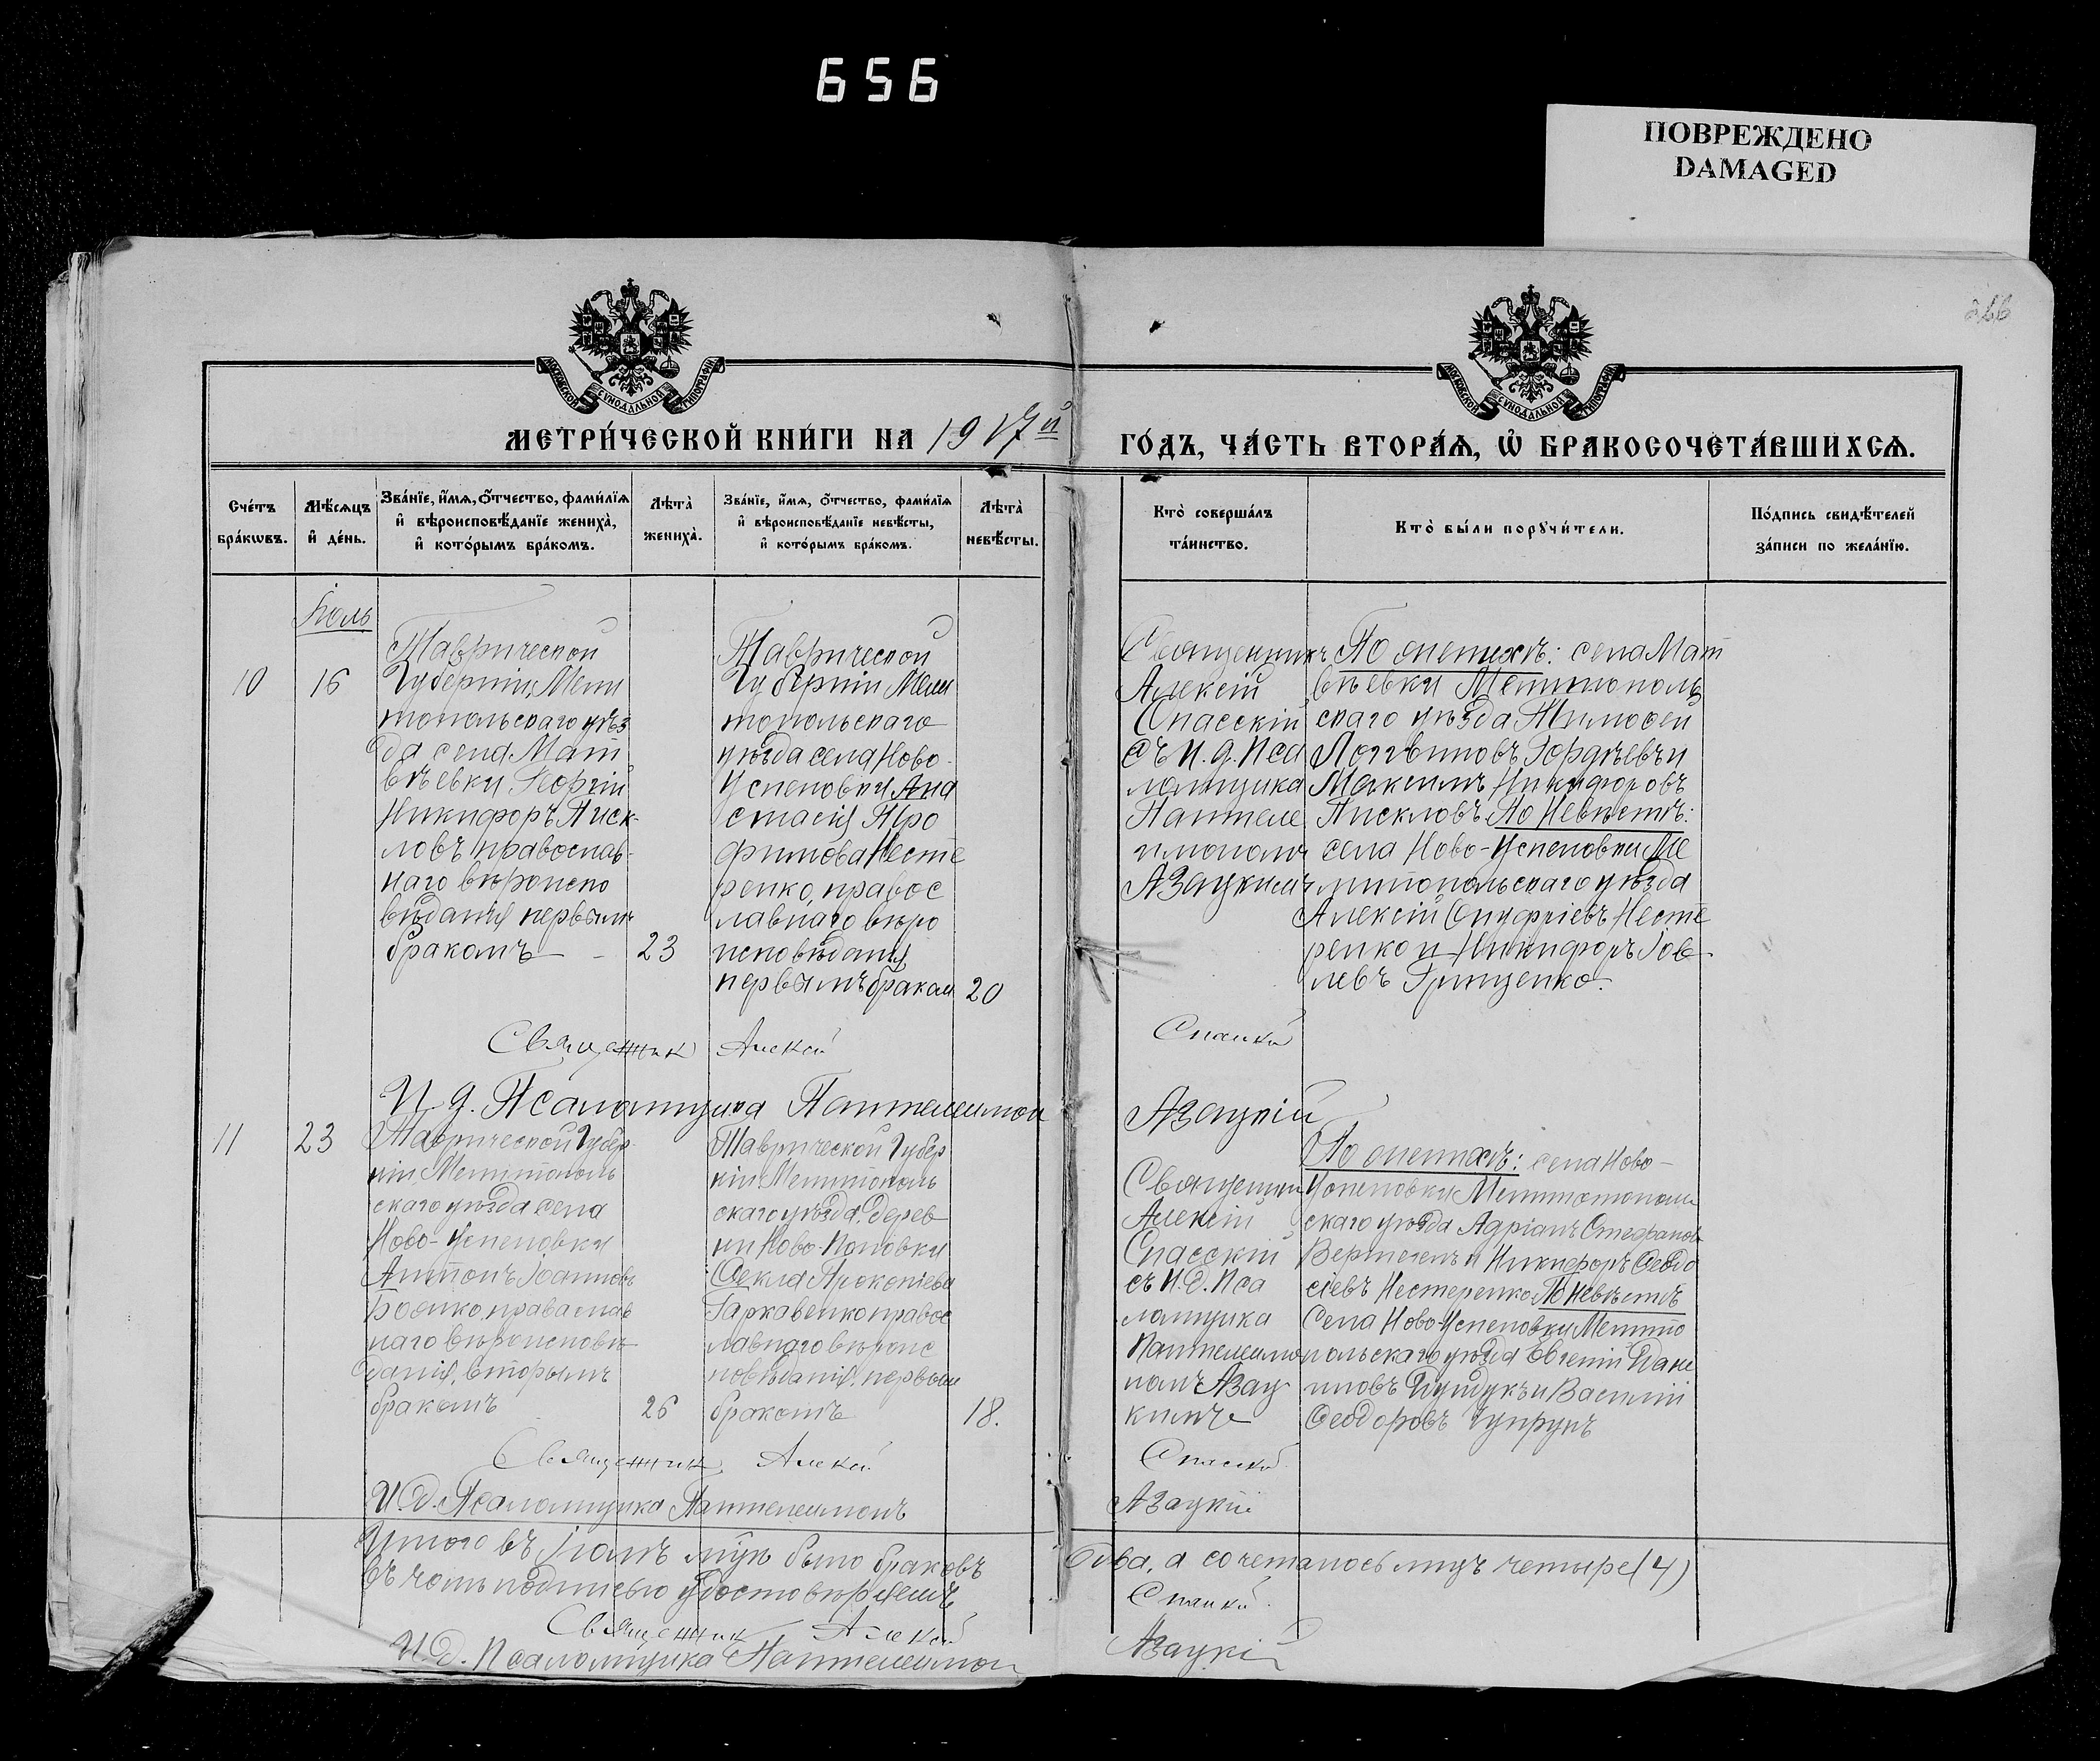 656
ПОВРЕЖДЕНО
DAMAGED
266
МОСКОВСКОЙ СѴНОДАЛЬНОЙ ТИПОГРАФІИ
МОСКОВСКОЙ СѴНОДАЛЬНОЙ ТИПОГРАФІИ
МЕТРИ́ЧЕСКОЙ КНИ́ГИ НА 1917й
ГО́ДЪ, ЧА́СТЬ ВТОРА́Ѧ, Ѽ БРАКОСОЧЕТА́ВШИХСѦ.
Сче́тъ
бра́кѡвъ.
Мѣ́сѧцъ
и҆ де́нь.
Зва́нїе, и҆́мѧ, ѻ҆́тчество, фами́лїѧ
и҆ вѣроисповѣ́данїе жениха̀,
и҆ кото́рымъ бра́комъ.
Лѣта̀
жениха̀.
Зва́нїе, и҆́мѧ, ѻ҆́тчество, фами́лїѧ
и҆ вѣроисповѣ́данїе невѣ́сты,
и҆ кото́рымъ бра́комъ.
Лѣта̀
невѣ́сты.
Кто̀ соверша́лъ
та́инство.
Кто̀ бы́ли порꙋчи́тели.
По́дпись свидѣ́телей
за́писи по жела́нїю.
Іюль
10
16
Таврической
Губерніи, Мели
топольскаго уѣз
да села Мат
вѣевки Георгій
Никифоръ Писк-
ловъ, православ-
наго вѣроиспо
вѣданія первымъ
бракомъ
23
Таврической
Губерніи Мели
топольскаго
уѣзда села Ново-
Успеновки Ана
стасія Тро
фимова Несте
ренко, правос
лавнаго вѣро
исповѣданія
первымъ браком
20
Священникъ
Алексій
Спасскій
съ И. д. Пса
ломщика
Пантеле
имономъ
Азацкимъ
По женихѣ: села Мат
вѣевки Мелитополь
скаго уѣзда Тимофей
Логгвиновъ Гордѣевъ и
Максимъ Никифоровъ
Пискловъ По Невѣстѣ:
села Ново-Успеновки Ме
литопольскаго уѣзда
Алексій Онуфріевъ Несте
ренко и Никифоръ Іов
левъ Гриценко.
Священник Алексѣй Спасскій
И. д. Псаломщика Пантелеимон Азацкій
11
23
Таврической Губер
ніи, Мелитополь
скаго уѣзда села
Ново-Успеновки
Антонъ Іоанновъ
Бойко, православ
наго вѣроисповѣ
данія, вторымъ
бракомъ
26
Таврической Губер
ніи Мелитополь
скаго уѣзда, дерев
ни Ново-Поповки
Ѳекла Прокопіева
Гаркавенко правос
лавнаго вѣроис
повѣданія, первым
бракомъ
18.
Священник
Алексій
Спасскій
съ И. д. Пса
ломщика
Пантелеимо
номъ Азац
кимъ
По женихѣ: села Ново-
Успеновки Мелитополь
скаго уѣзда Адріанъ Стефановъ
Вертегелъ и Никифоръ Ѳеодо
сіевъ Нестеренко По невѣстѣ
Села Ново-Успеновки Мелито
польскаго уѣзда Евгеній Дани
иловъ и Василій
Ѳеодоровъ Чупрунъ
Священник Алексѣй Спасскій
И. д. Псаломщика Пантелеимонъ Азацкій
Итого въ Іюлѣ м-цѣ было браковъ два, а сочеталось лицъ четыре (4)
въ чемъ подписью удостовѣряемъ
Священник Алексѣй Спасскій
И. д. Псаломщика Пантелеимон Азацкій